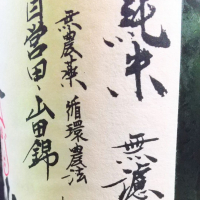 純米 無濾
無農薬 循環農法
自営田・山田錦